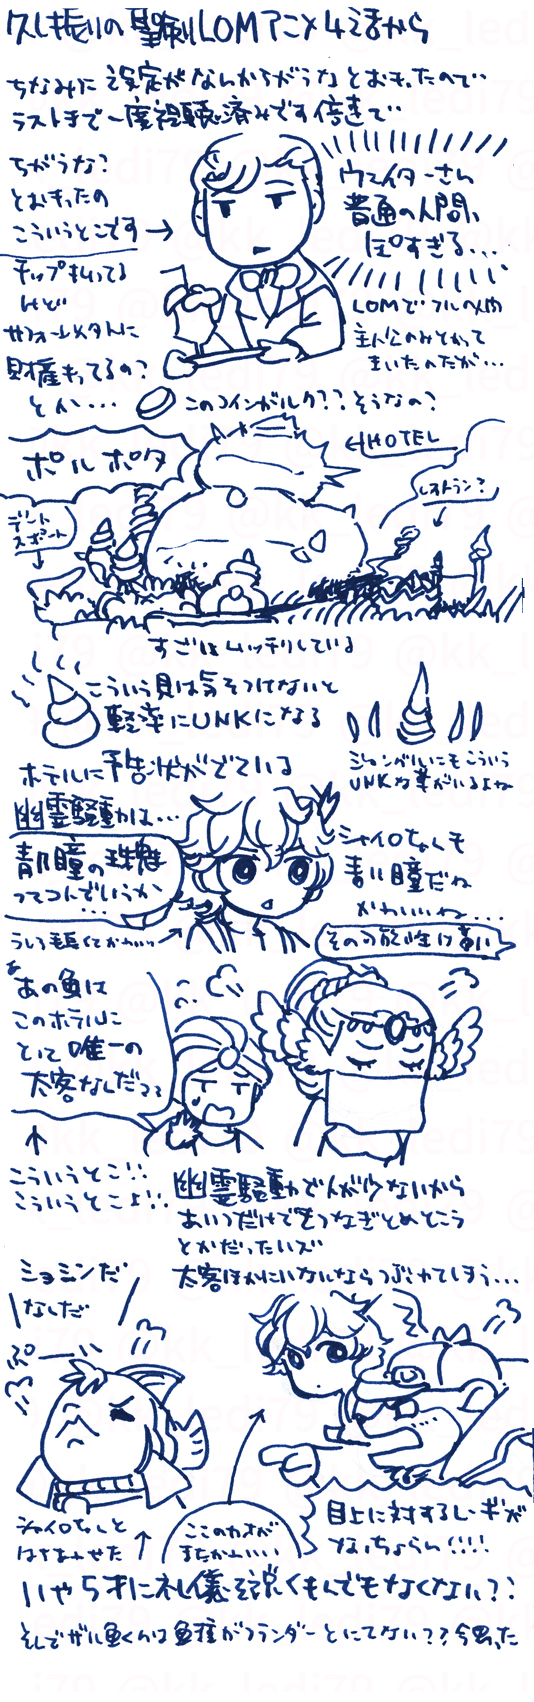 久し振りの聖剣LOMアニメ4話から
ちなみに設定がなんかちがうなとおもったので…
ラストまで一度視聴済みです倍速で…
ちがうな?
とおもったの
こういうとこです→
チップ払ってる
けど
サフォーはメタトに
財産もってるの?
とか…
ウェイターさん
普通の人間、
ぽすぎる…
LOMでフルの人間
主人公のみとかって
きいたのだが…
このコインがルク??そうなの?
ポルポタ
←HOTEL
デート
スポット
レストラン?
すごいムッチリしている
こういう貝は気をつけないと
軽率にUNKになる
ジャングルにもこういう
UNKな草がいるよね
ホテルに予告状がでている
幽霊騒動は…
青い瞳の珠魅
ってつんでいうか
…
シャイロちゃんも
青い瞳だね
かわいいね…
その可能性は高い
うしろ毛長くてかわいい
あの魚は
このホテルに
とって唯一の
太客なんだってる
↑
こういうとこ!!
こういうとこよ!!
幽霊騒動で人が少ないから
あいつだけでもつなぎとめとこう
とかだったハズ
太客ほかにいないならつぶれてしまう…
ショミンだ
なんだ
ぷーい
シャイロちゃんと
はちあわせた
ここのカオが
またかわいい
目上に対するレーギが
ないちょらん!!!!
いや5才に礼儀を説くもんでもなくない??
そしてサル魚くんは魚種がフランダーとにてない??今思った